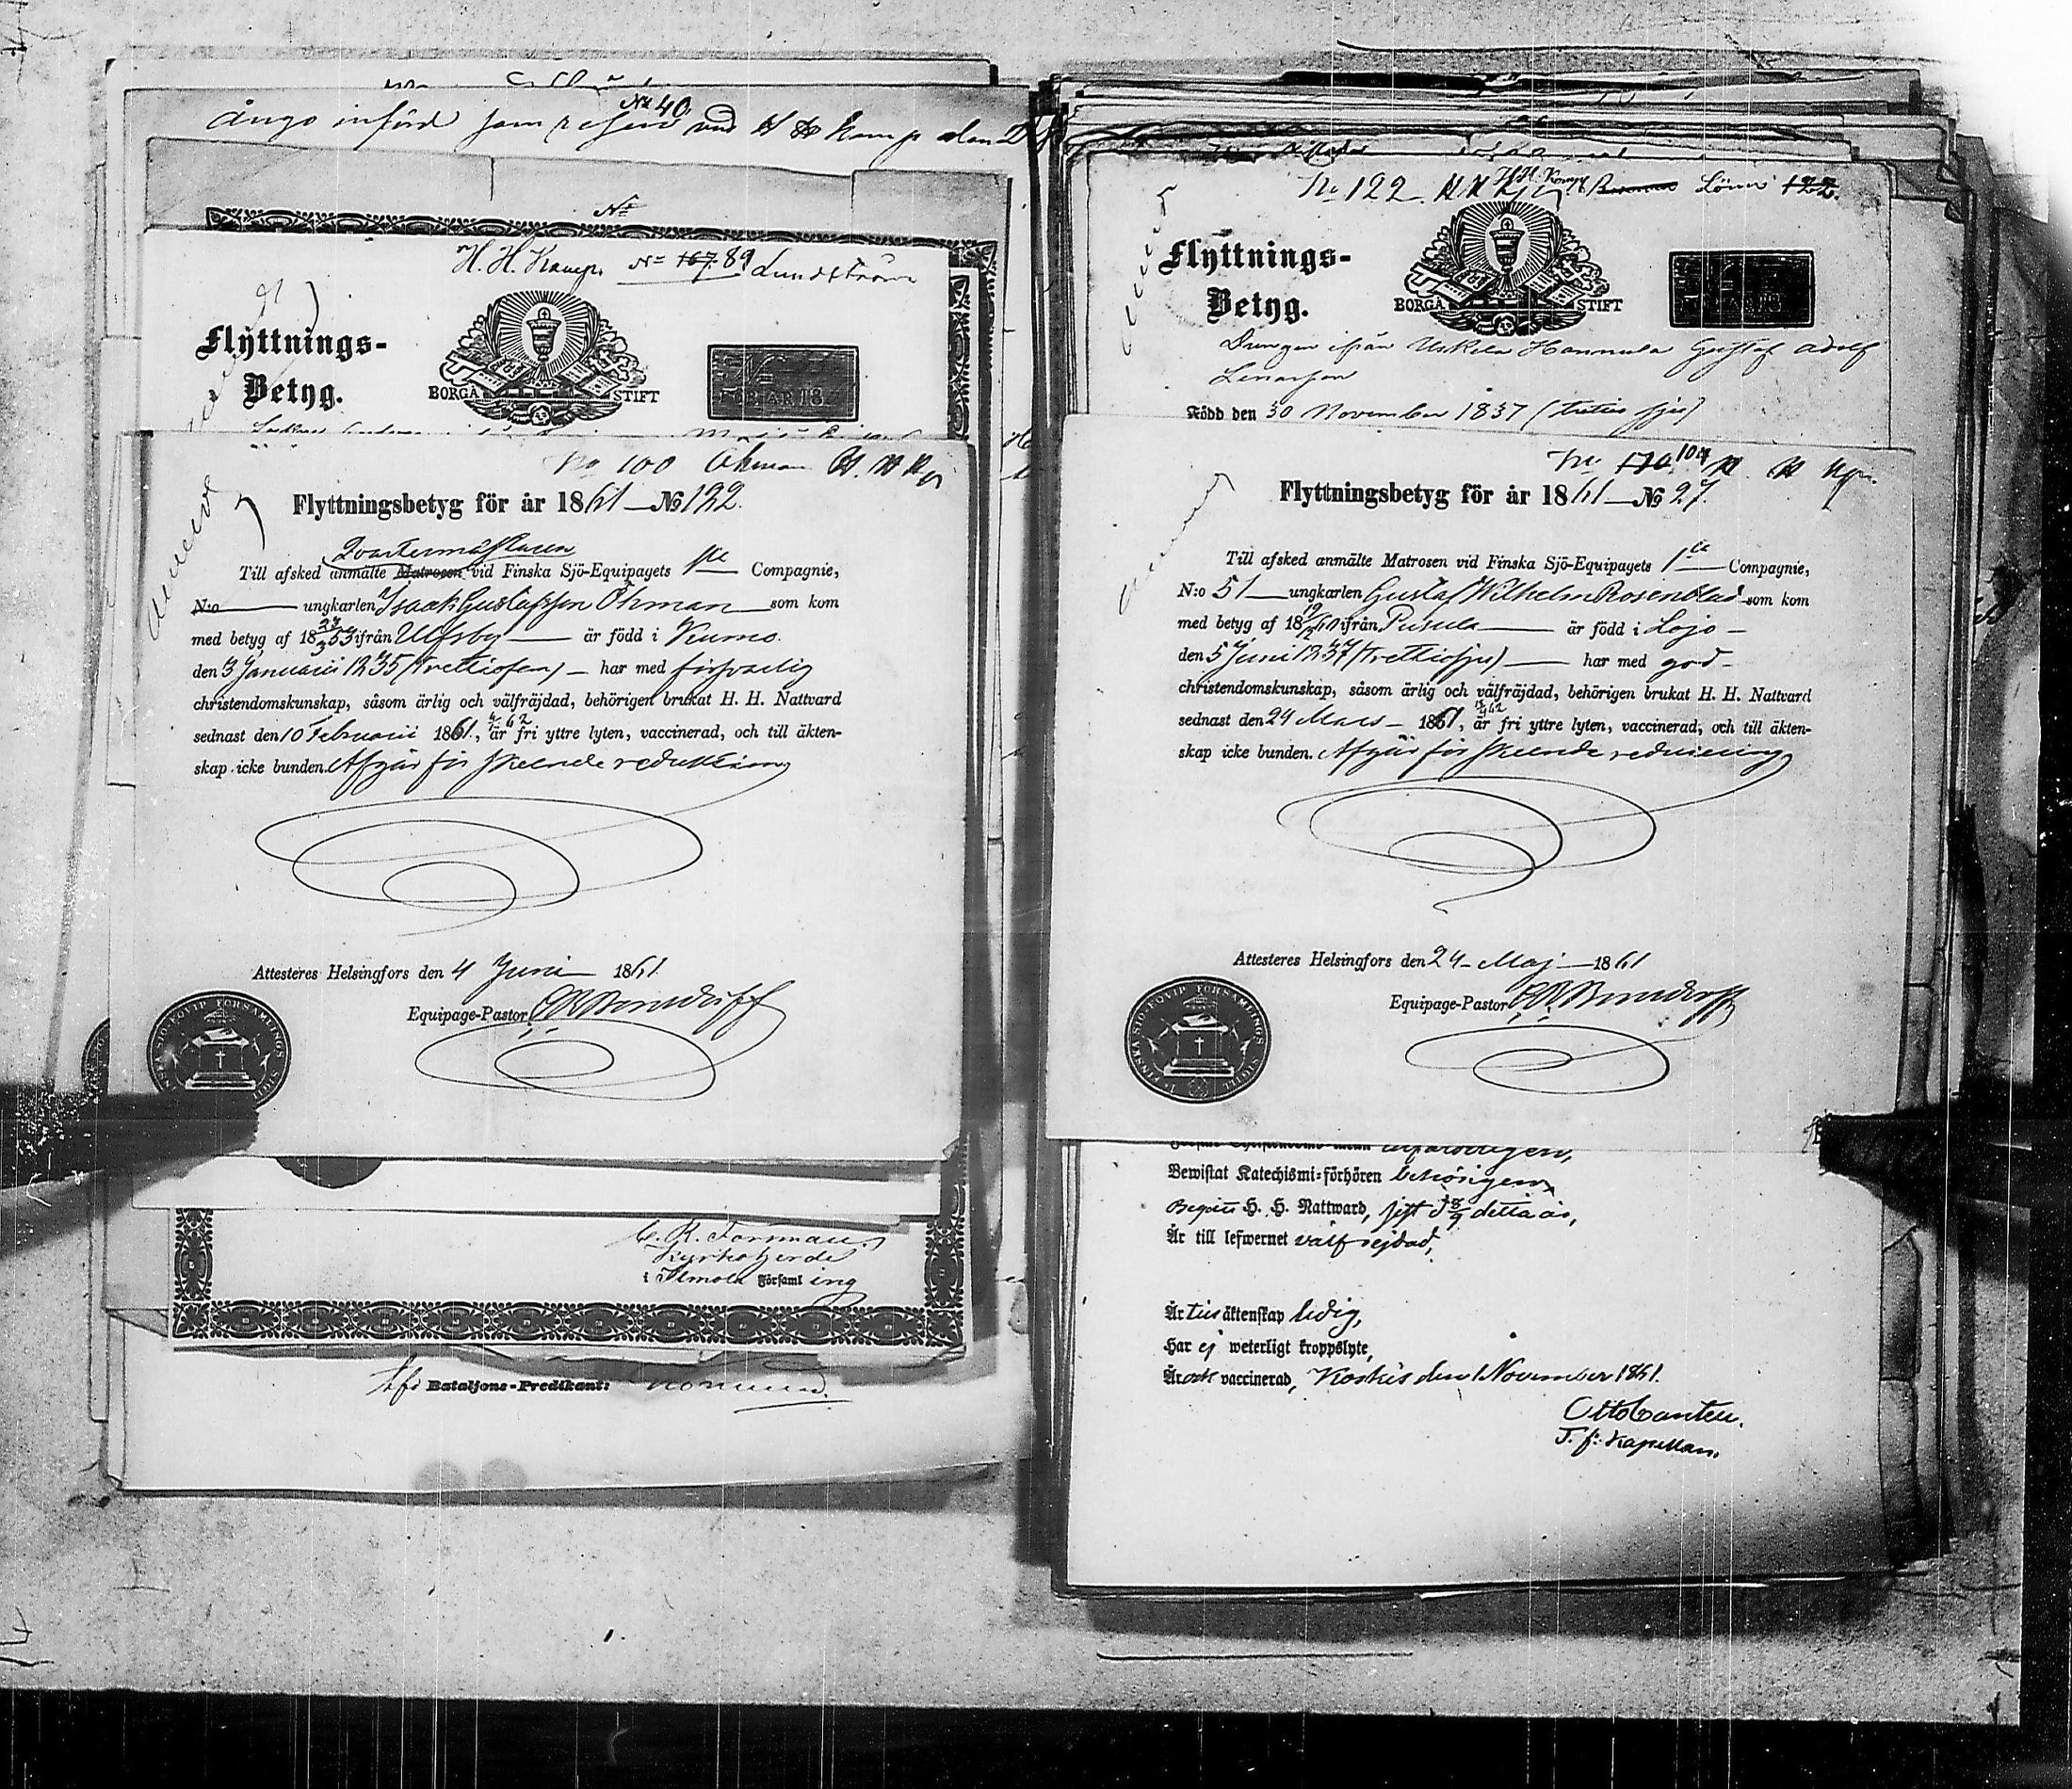 Ångo införd som
No 40
H. H. Kamp. No 167. 89 Lundström
Flyttnings-
Betyg.
BORGÅ STIFT
FÖR ÅR 18
No 100 Öhman H. H. K
Flyttningsbetyg för år 1861 — No 122.
Qvartermästaren
Till afsked anmälte Matrosen vid Finska Sjö-Equipagets 1sta Compagnie,
N:o ungkarlen Isaak Gustafsson Öhman som kom
med betyg af 18 23/3 53 ifrån Ulfsby är född i Kumo.
den 3 Januarii 1835 (trettiofem) — har med försvarlig
christendomskunskap, såsom ärlig och välfräjdad, behörigen brukat H. H. Nattvard
sednast den 10 Februarii 1861, är fri yttre lyten, vaccinerad, och till äkten-
skap icke bunden. Afgår för skeende reduktion
Attesteres Helsingfors den 4 Juni 1861.
Equipage-Pastor
C. R. Forsman
Kyrkoherde
i Ilmola Församling
Bataljons-Predikant:
No 122. H. H. Komp. Lönn 122.
Flyttnings-
Betyg.
BORGÅ STIFT
Drengen ifrån Uskela Hannula Gustaf Adolf
Lenarsson
Född den 30 November 1837 (trettio sju)
No 170 104 H. H. Kp.
Flyttningsbetyg för år 1861 — No 27.
Till afsked anmälte Matrosen vid Finska Sjö-Equipagets 1sta Compagnie,
N:o 51 ungkarlen Gustaf Wilhelm Rosenblad som kom
med betyg af 18 19/12 60 ifrån Pusula är född i Lojo —
den 5 Juni 1837 (trettiosju) — har med god
christendomskunskap, såsom ärlig och välfräjdad, behörigen brukat H. H. Nattvard
sednast den 24 Mars — 1861, är fri yttre lyten, vaccinerad, och till äkten-
skap icke bunden. Afgår för skeende reducering
Attesteres Helsingfors den 24 Maj 1861
Equipage-Pastor
FINSKA SJÖ-EQVIP. FÖRSAMLINGS SIGILL
Bewistat Katechismi-förhören behörigen,
Begått H. H. Nattward, sist d 8/9 detta år,
Är till lefwernet välfrejdad,
Är till äktenskap ledig,
Har ej weterligt kroppslyte,
Är ock vaccinerad, Koskis den 1 November 1861.
Otto Canten.
T. f. Kapellan.